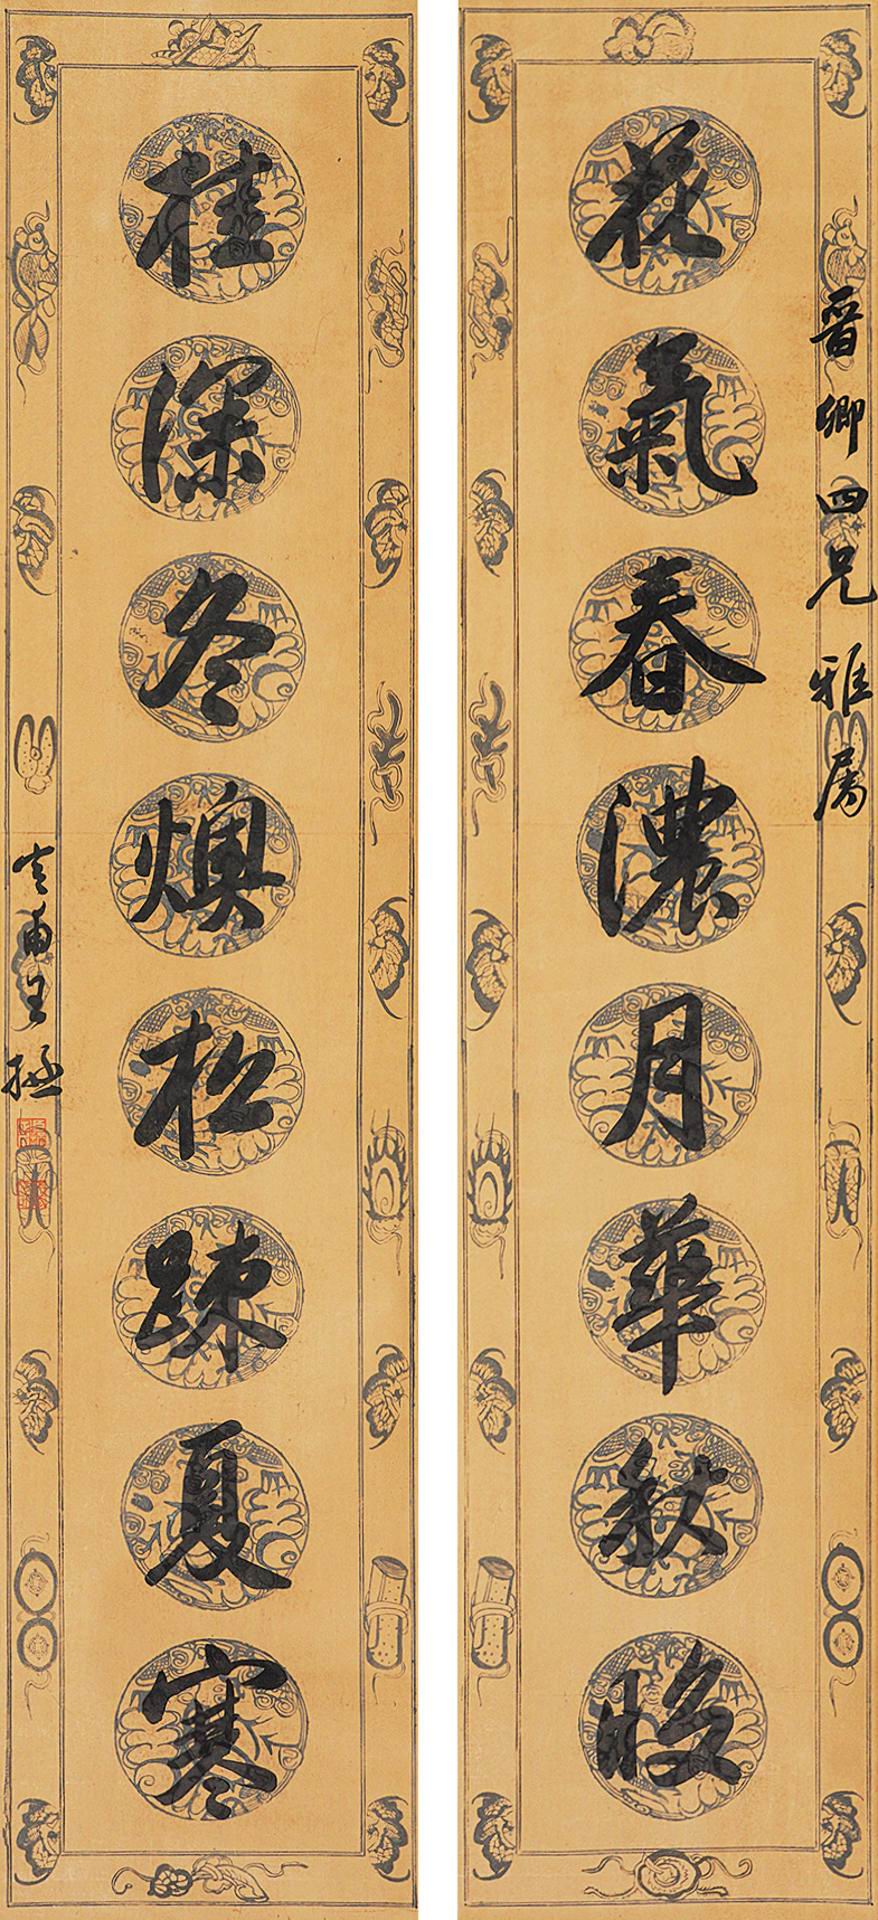 晉卿四兄雅属
花氣春濃月華秋晚
桂深冬燠松疎夏寒
定甫王拯